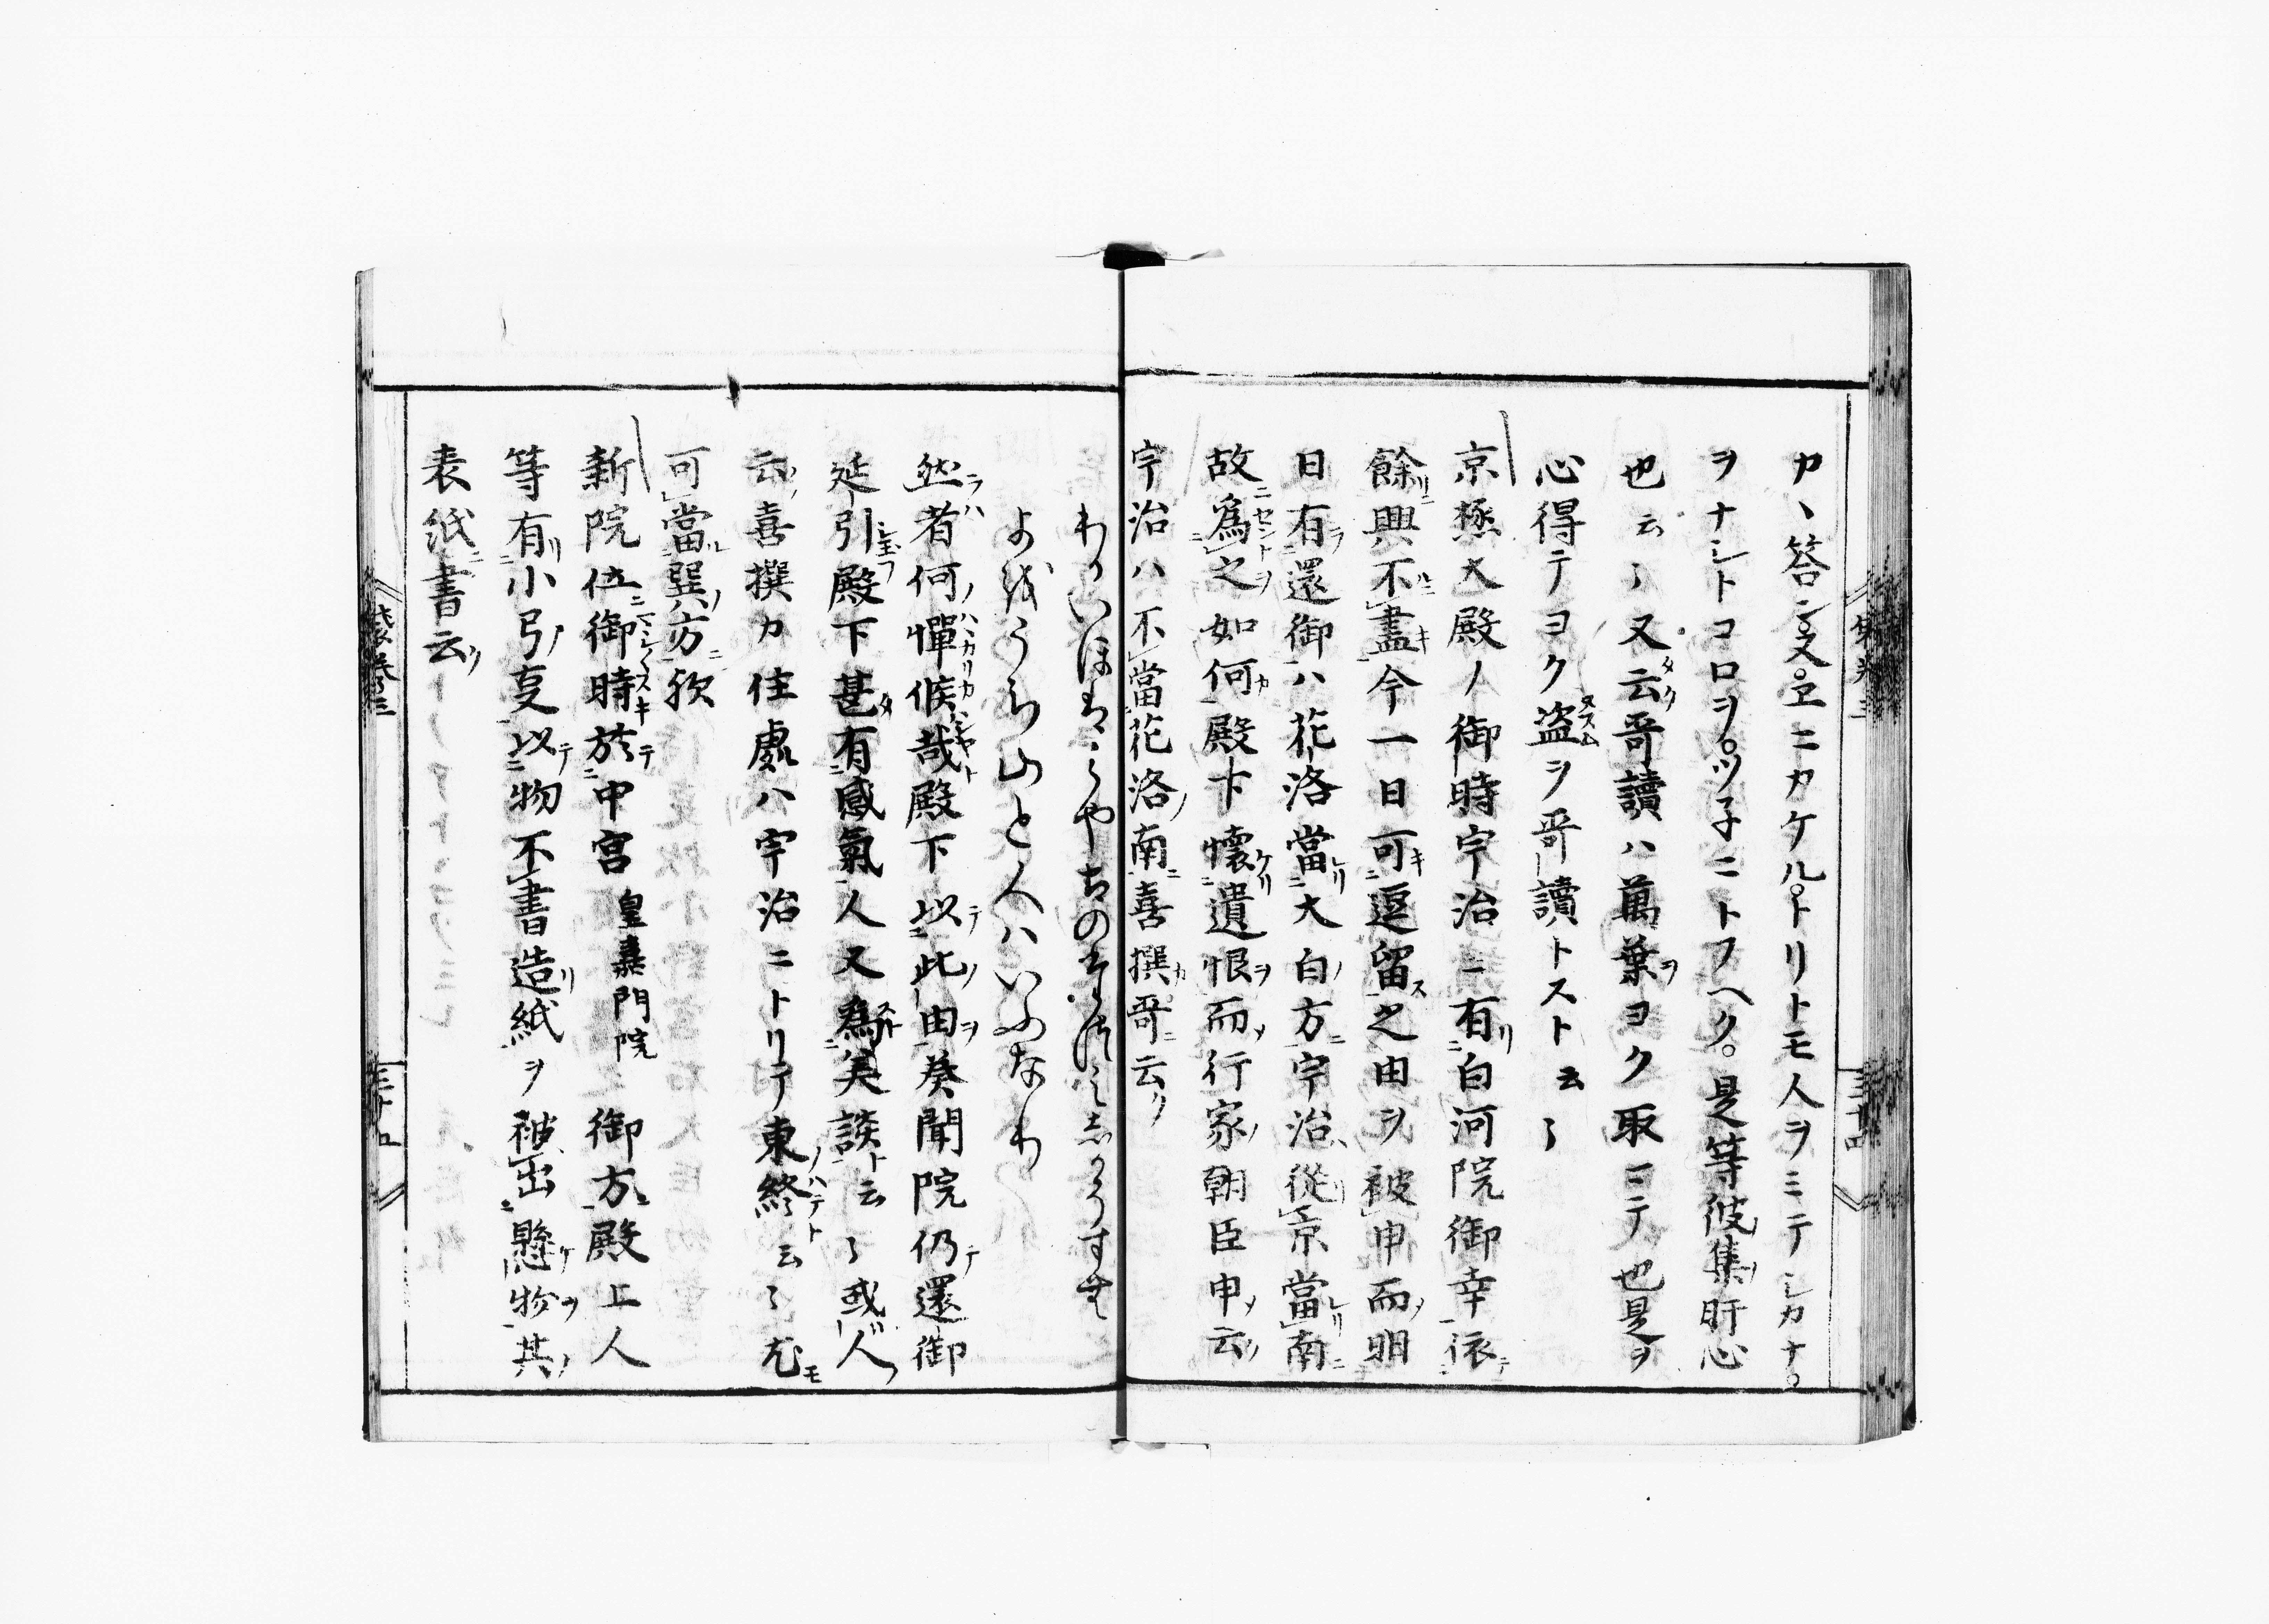 カヽ答シ。又。ヱニカケル。トリトモ人ヲミテシカナ。
ヲナシトコロヲ。ツ子ニトフヘク。是等彼集肝心
也云〻又云哥讀ハ萬葉ヨク取ニテ也是ヲ
心得テヨク盗ヲ哥讀トスト云〻
京極大殿ノ御時宇治ニ有白河院御幸依
餘興不盡今一日可逗留之由ヲ被申而明
日有還御ハ花洛當大白方宇治従京當南
故為之如何殿下懐遺恨而行家朝臣申云
宇治ハ不當花洛南喜撰哥云
わかいほはみやこのたつみしかそすむ
よをうち山と人はいふなり
然者何憚候哉殿下以此由奏聞院仍還御
延引殿下甚有感氣人又為美談云〻或人
云喜撰カ住處ハ宇治ニトリテ東終云〻尤
可當巽方歟
新院位御時於中宮皇嘉門院御方殿上人
等有小弓㕝以物不書造紙ヲ被出懸物其
表紙書云